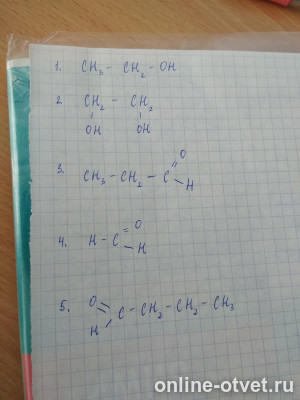 1. CH₃ - CH₂ - OH
2. CH₂ - CH₂
OH OH
O
3. CH₃ - CH₂ - C
H
4. H - C = O
H
5. O = C - CH₂ - CH₂ - CH₃
H
online-otvet.ru